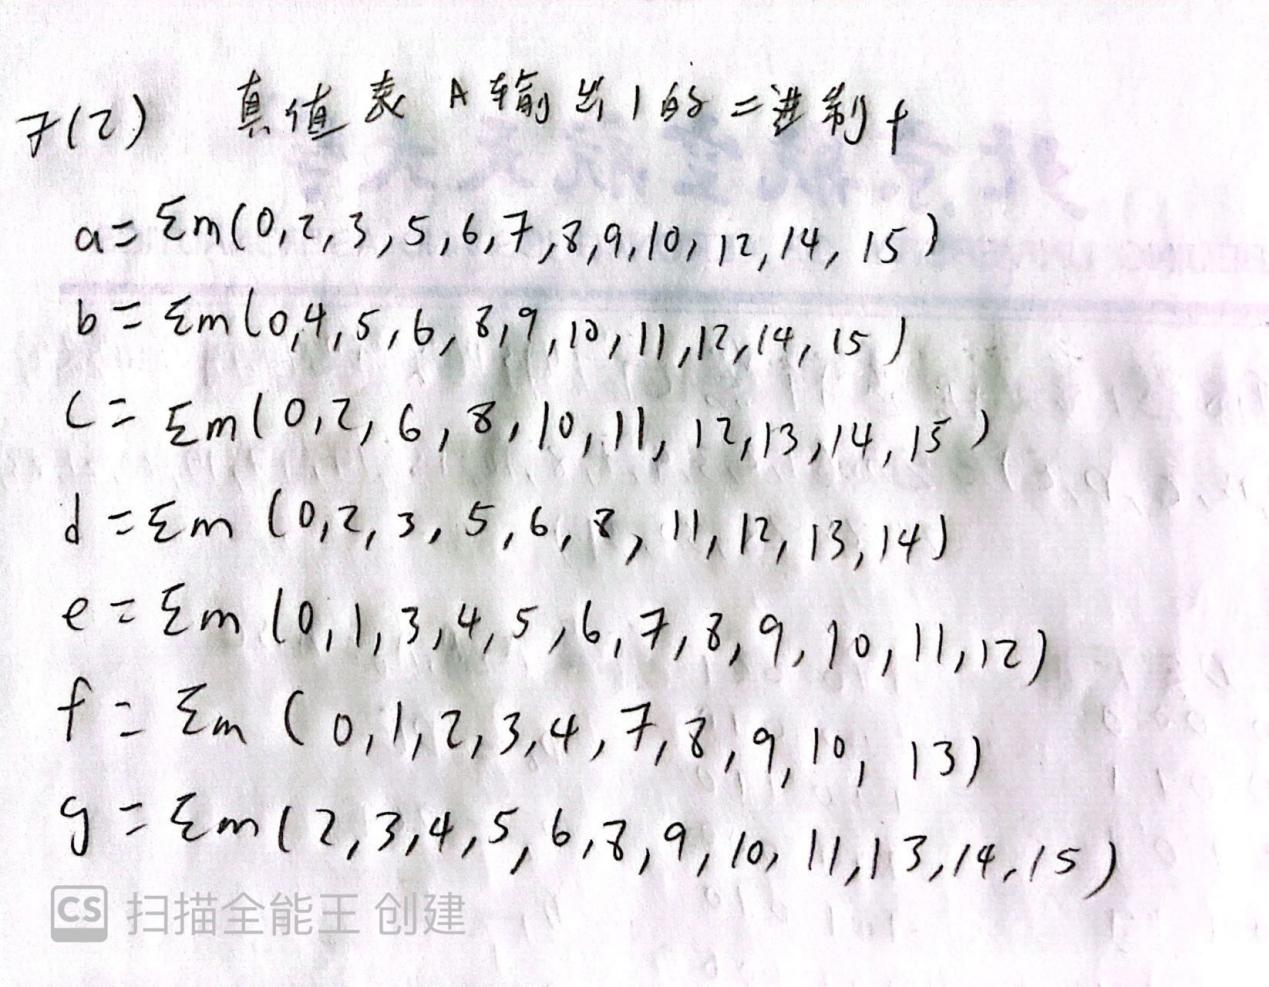 7(2) 真值表 A 输出 1 的二进制 f
a=Σm(0,2,3,5,6,7,8,9,10,12,14,15)
b=Σm(0,4,5,6,8,9,10,11,12,14,15)
c=Σm(0,2,6,8,10,11,12,13,14,15)
d=Σm(0,2,3,5,6,8,11,12,13,14)
e=Σm(0,1,3,4,5,6,7,8,9,10,11,12)
f=Σm(0,1,2,3,4,7,8,9,10,13)
g=Σm(2,3,4,5,6,8,9,10,11,13,14,15)
CS 扫描全能王 创建